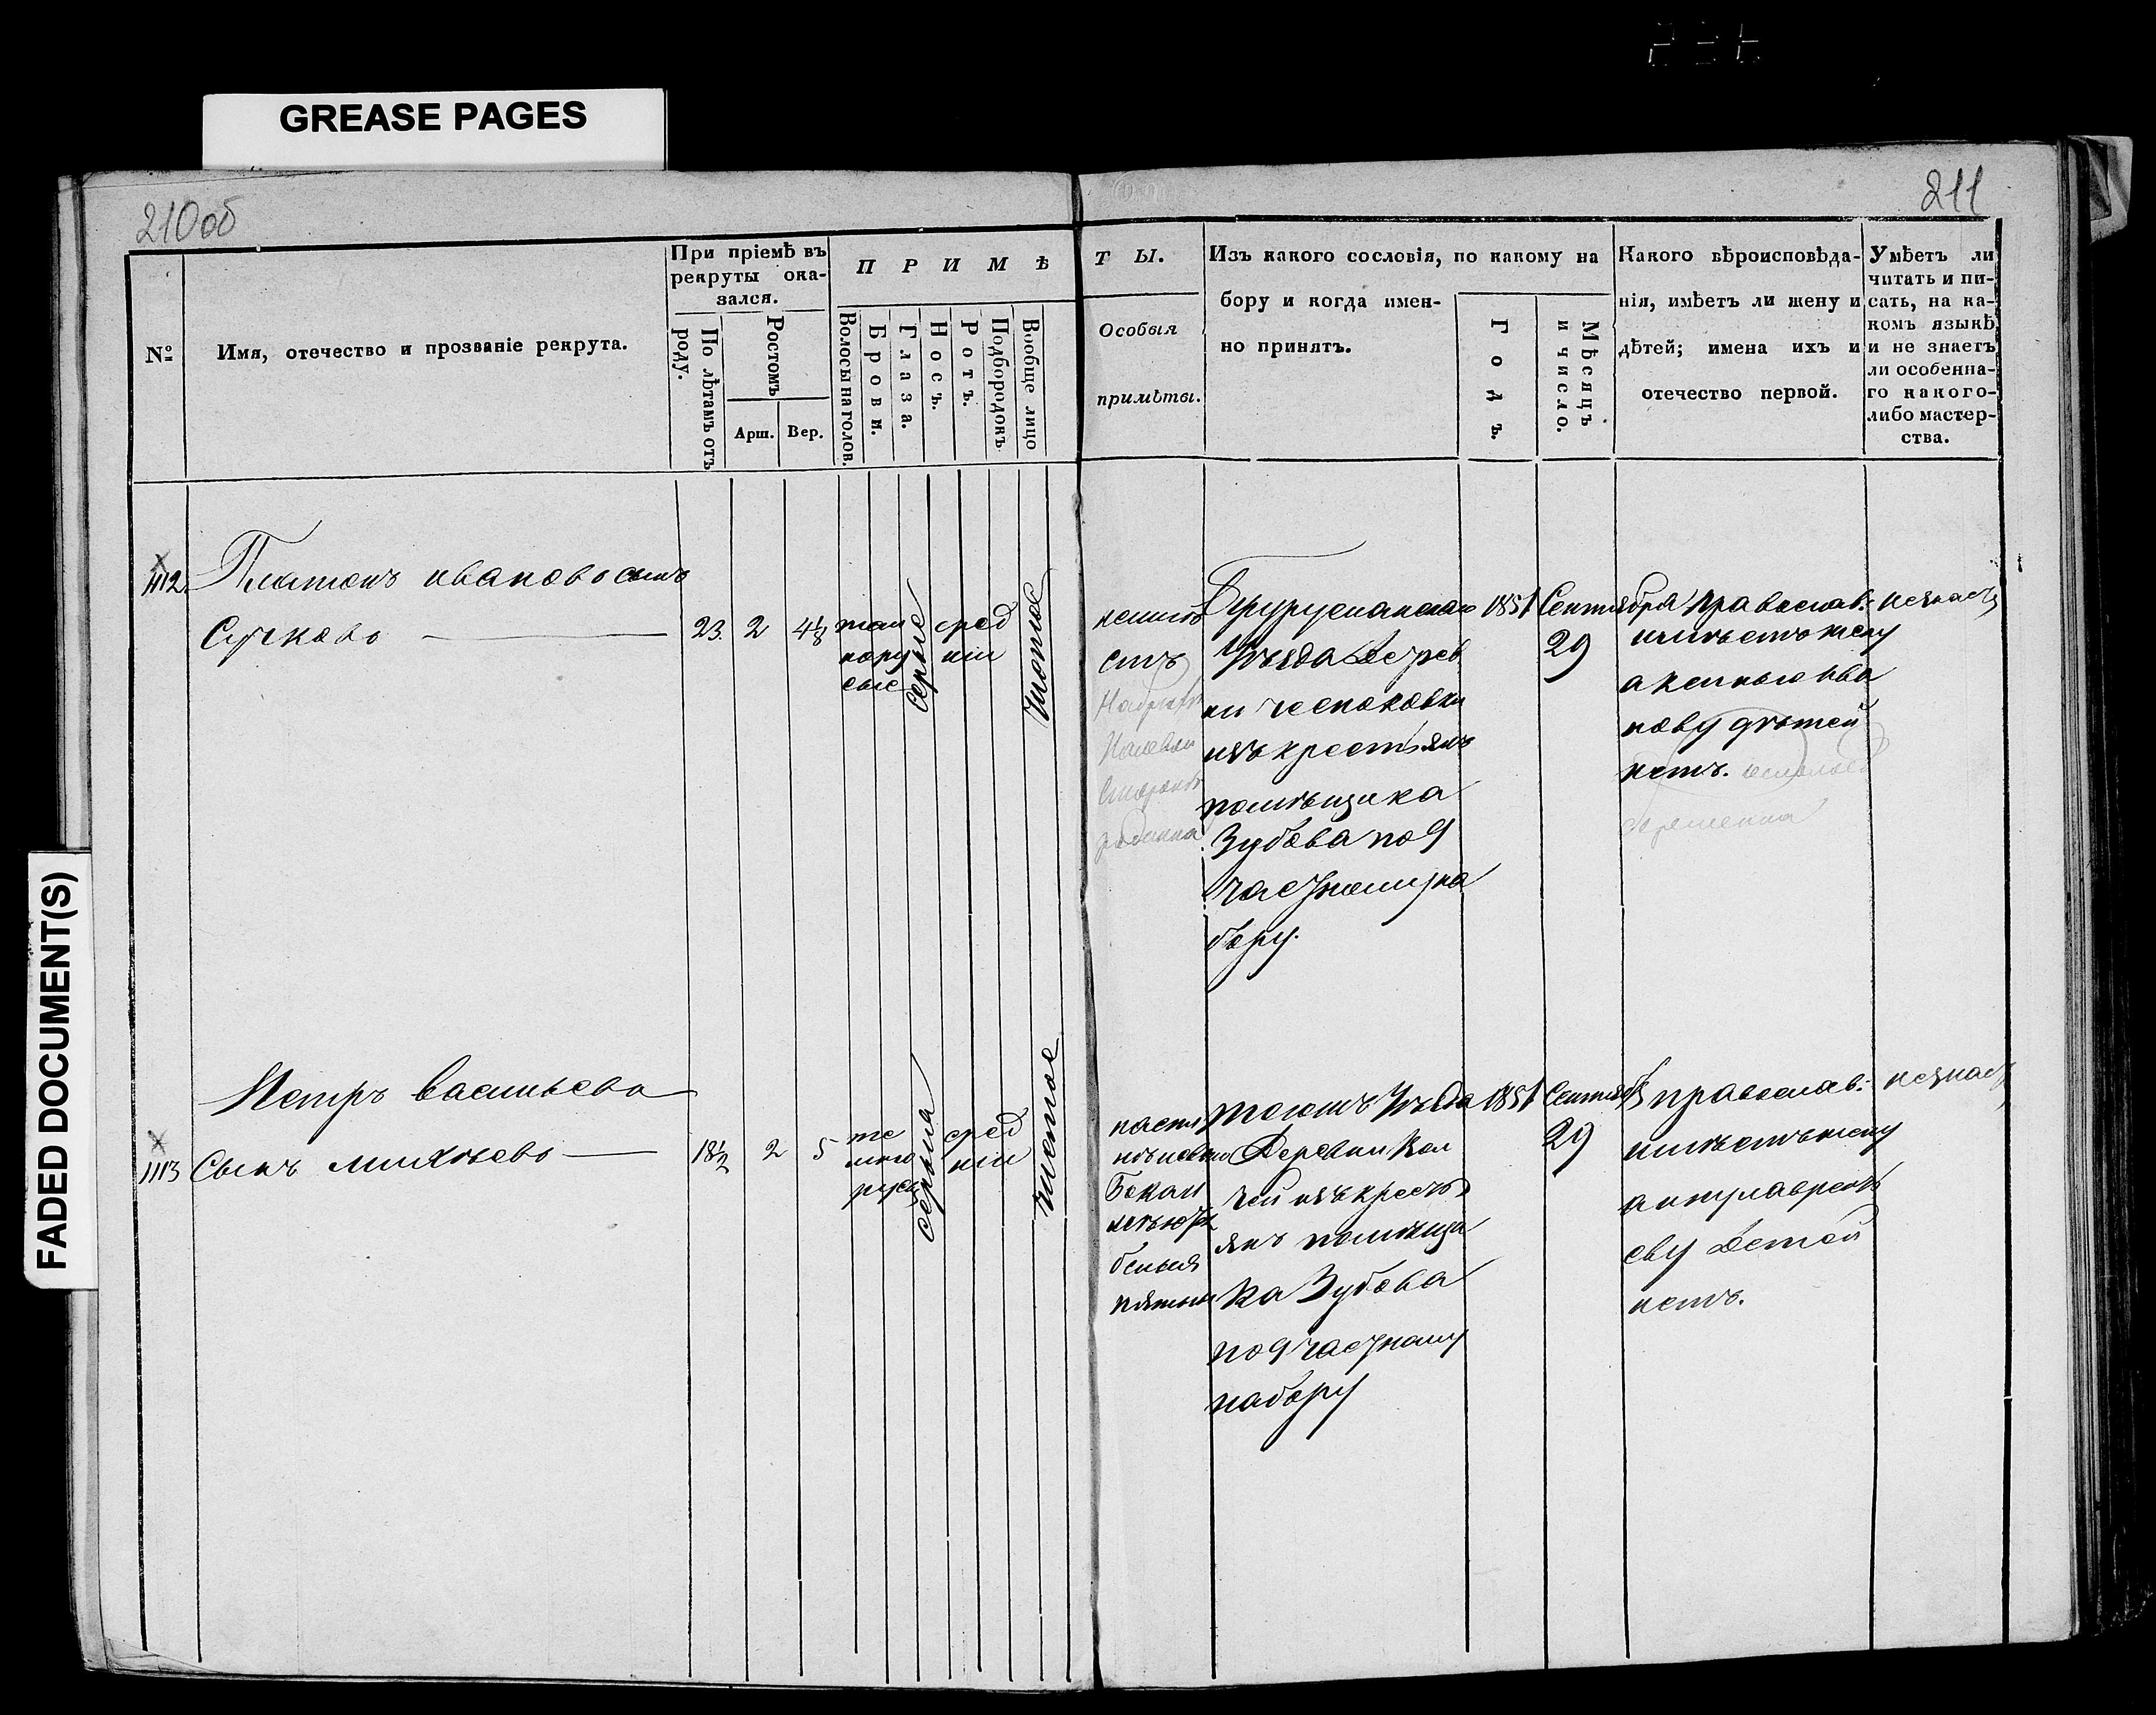 GREASE PAGES
FADED DOCUMENT(S)
210об
211
№
Имя, отечество и прозваніе рекрута.
При пріемѣ въ
рекруты ока-
зался.
По лѣтамъ отъ
роду.
Ростомъ
Арш. Вер.
П Р И М Ѣ
Волосы на голов.
Брови.
Глаза.
Носъ.
Ротъ.
Подбородокъ
Вообще лицо
Т Ы.
Особыя
примѣты.
Изъ какого сословія, по какому на
бору и когда имен-
но принятъ.
Годъ.
Мѣсяцъ
и число.
Какого вѣроисповѣда-
нія, имѣетъ ли жену и
дѣтей; имена ихъ и
отечество первой.
Умѣетъ ли
читать и пи-
сать, на ка-
комъ языкѣ
и не знаетъ
ли особенна-
го какого-
либо мастер-
ства.
1112
Платонъ Ивановъ сынъ
Сучковъ
23 2 4 1/8
серые
сред
ніи
чистое
Бугурусланскаго
Уѣзда Дерев
ни
изъ крестьянъ
помѣщика
Зубова по 9
частному на
бору.
1851
Сентября
29
православ:
имѣетъ жену
аксинью ива
нову дѣтей
нетъ.
незнаетъ
1113
Петръ Васильевъ
Сынъ Михѣевъ
18 1/2 2 5
те
мно
русы
серыя
сред
ніи
чистое
белыя
пятны
тогожъ Уѣзда
Деревни Кол
чей изъ кресть
янъ помѣщи
ка Зубова
по 9 частному
набору
1851
Сентяб
29
православ:
имѣетъ жену
еву Детей
нетъ.
незнаетъ